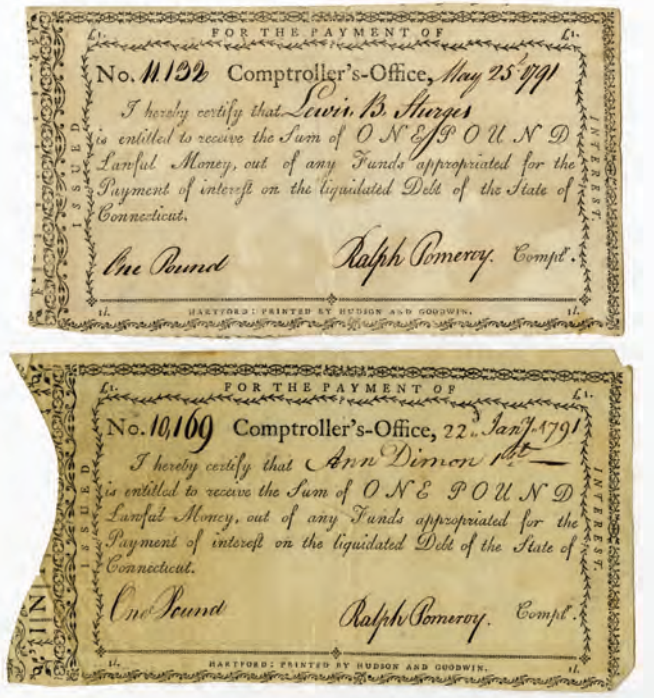 FOR THE PAYMENT OF
£1. £1.
No. 11.132 Comptroller's-Office, May 25t 1791
I hereby certify that Lewis B. Sturges
is entitled to receive the Sum of ONE POUND
Lawful Money, out of any Funds appropriated for the
Payment of interest on the liquidated Debt of the State of
Connecticut.
One Pound Ralph Pomeroy. Comptr.
ISSUED
INTEREST.
1l. HARTFORD: PRINTED BY HUDSON AND GOODWIN. 1l.
FOR THE PAYMENT OF
£1. £1.
No. 10,169 Comptroller's-Office, 22d Jany. 1791
I hereby certify that Ann Dimon
is entitled to receive the Sum of ONE POUND
Lawful Money, out of any Funds appropriated for the
Payment of interest on the liquidated Debt of the State of
Connecticut.
One Pound Ralph Pomeroy. Comptr.
ISSUED
INTEREST.
1l. HARTFORD: PRINTED BY HUDSON AND GOODWIN. 1l.